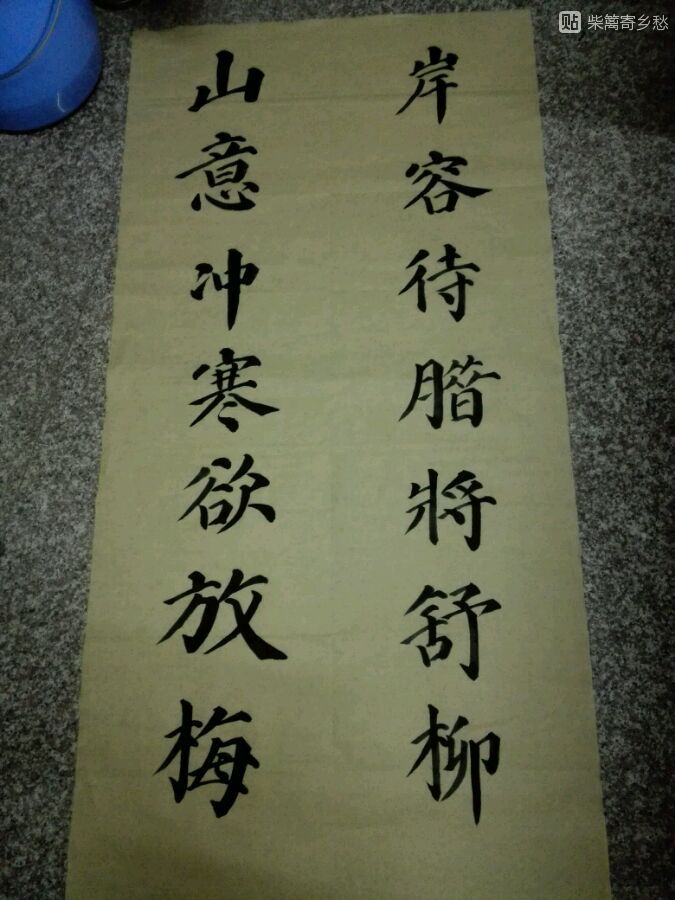 岸容待臘將舒柳
山意冲寒欲放梅
贴 柴篱寄乡愁